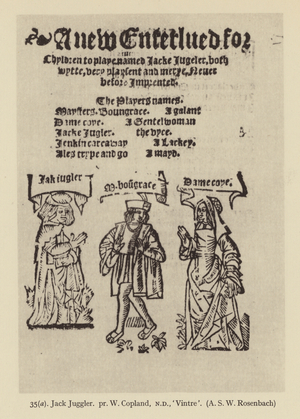 A new Enterlued for
Chyldren to playe, named Jacke Jugeler, both
wytte, very playsent and merye, Neuer
before Imprented.
The Players names.
Mayster Boungrace. A galant
Dame coye. A Gentelwoman
Jacke Jugler. the vyce.
Jenkin careaway A Lackey.
Ales trype and go A mayd.
Jak iugler
M. boūgrace
Dame coye.
35(a). Jack Juggler. pr. W. Copland, N.D., 'Vintre'. (A. S. W. Rosenbach)